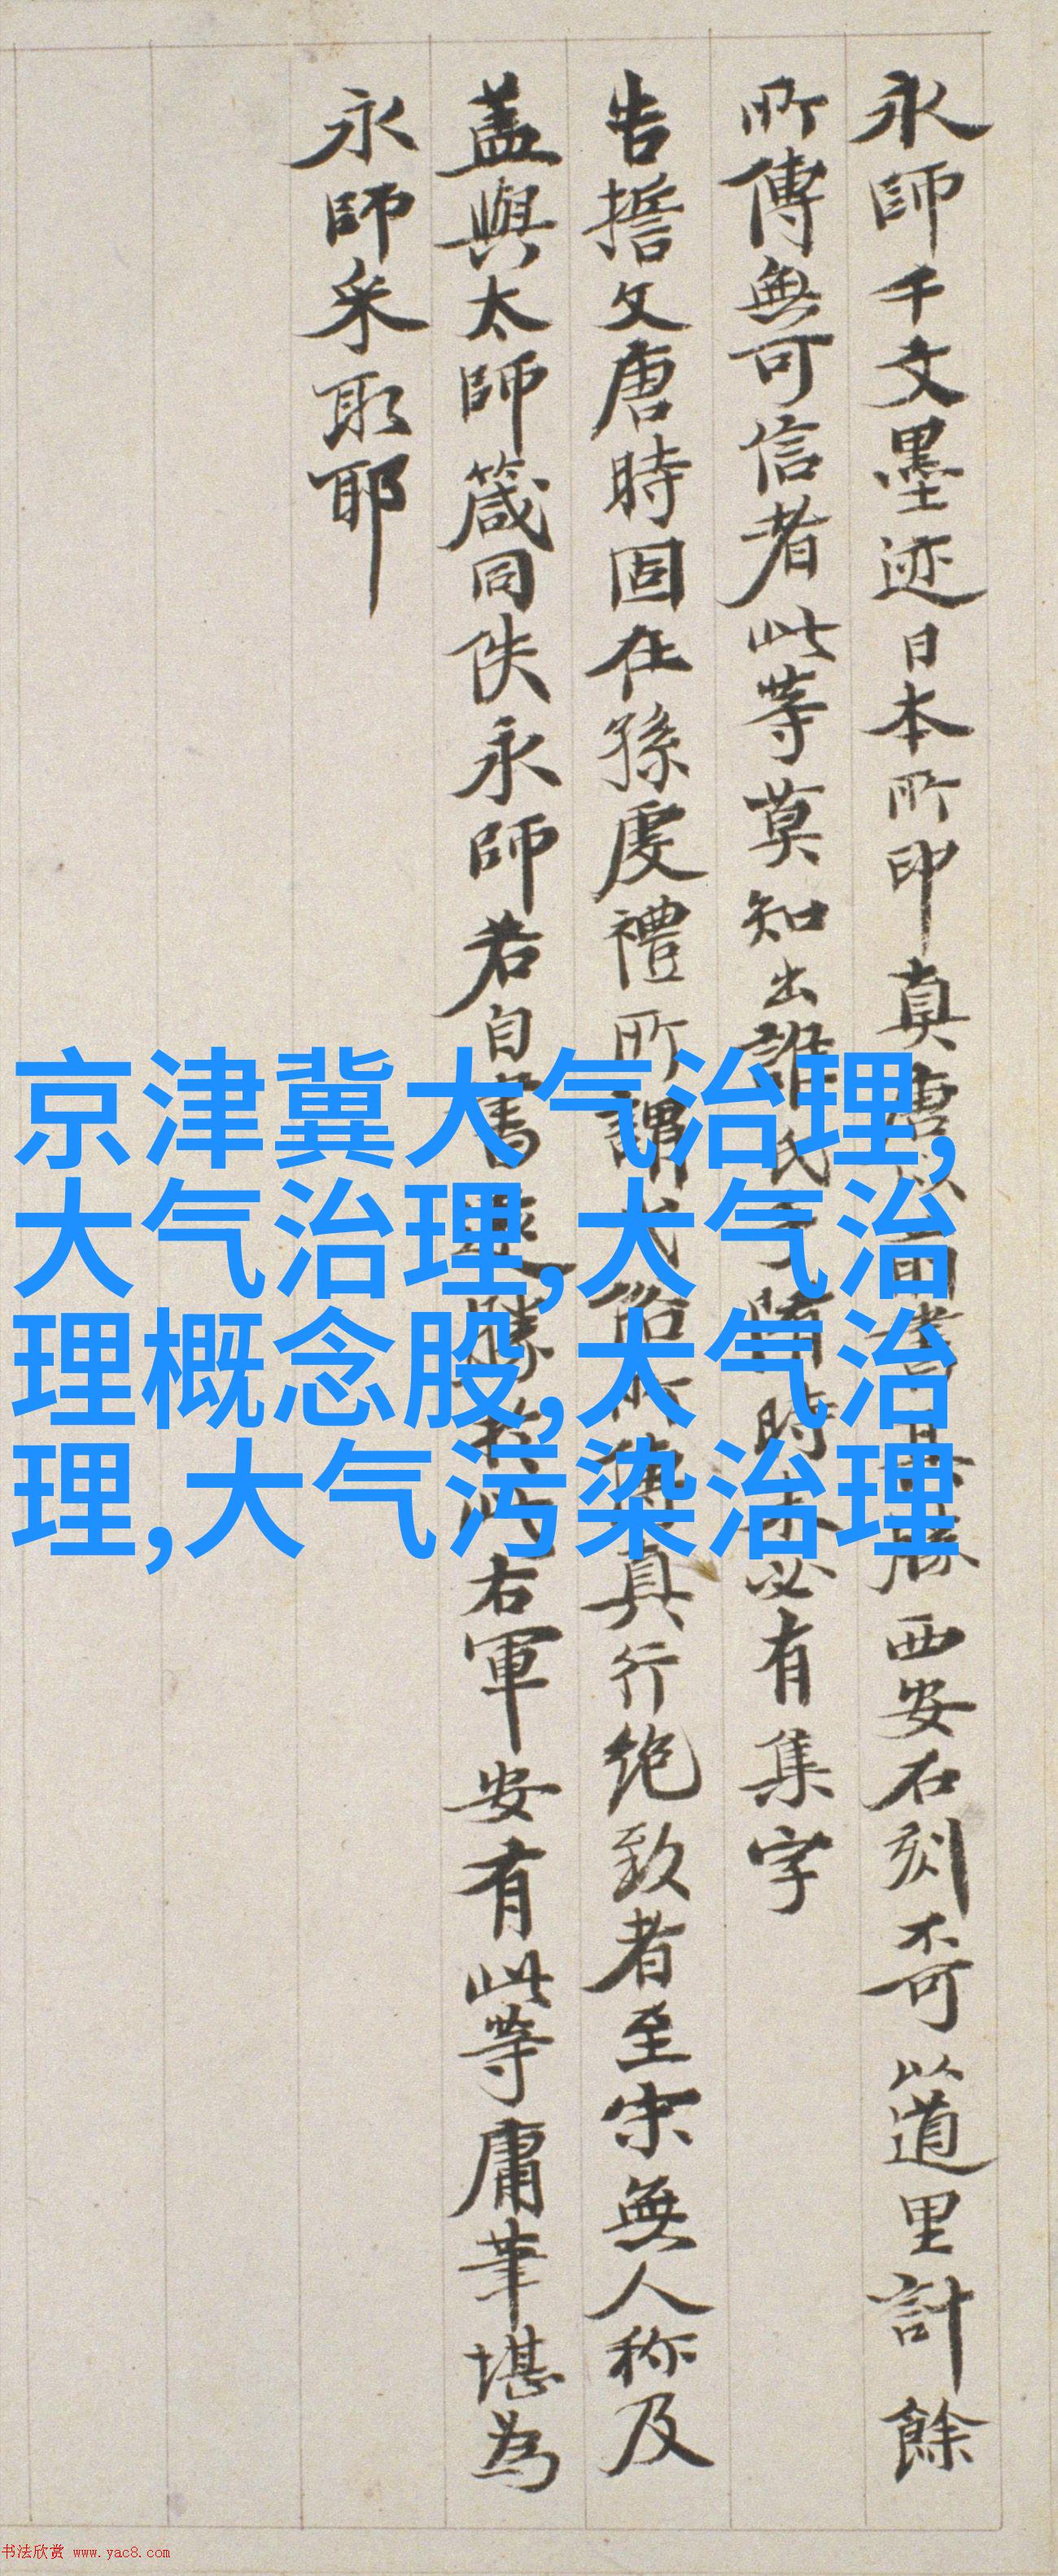 永師千文墨迹日本所印真唐以前書其勝西安石刻不可以道里計餘
所傳無可信者此等莫知出誰氏手隋時未必有集字
告擔文唐時固在孫虔禮所謂代俗所傳真行绝致者至宋無人称及
盖與太師箴同佚永師若自書
右軍安有此等庸筆堪為
永師采取耶
京津冀大气治理,
大气治理,大气治
理概念股,大气治
理,大气污染治理
书法欣赏 www.yac8.com